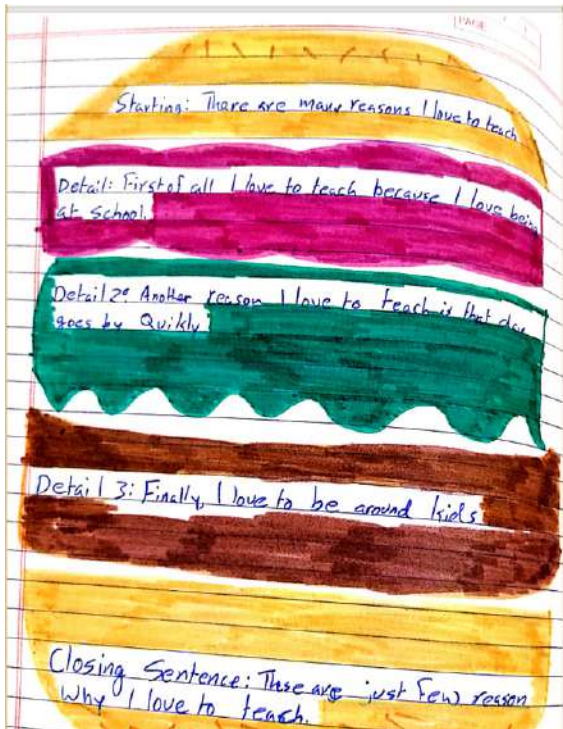 PAGE
Starting: There are many reasons I love to teach
Detail: First of all I love to teach because I love being
at school.
Detail 2: Another reason I love to teach is that day
goes by Quikly
Detail 3: Finally, I love to be around kids
Closing Sentence: These are just few reason
why I love to teach.